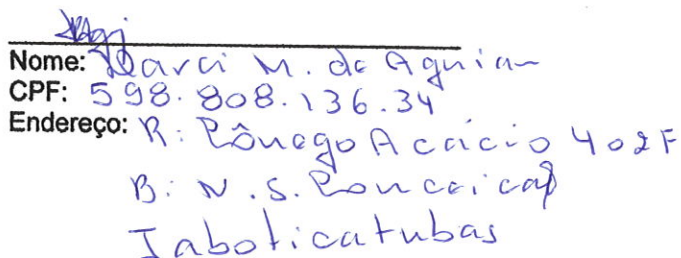 Nome: Darci M. de Aguiar
CPF: 598.808.136.34
Endereço: R: Cônego Acácio 402F
B: N.S. Conceição
Jaboticatubas